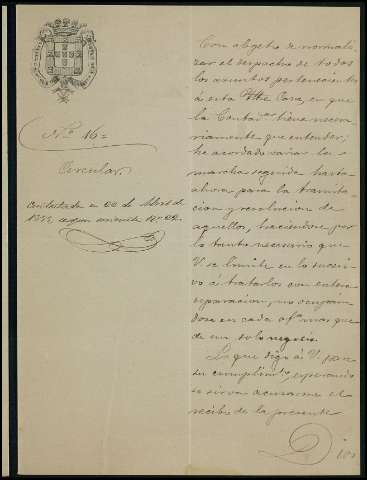 Nº 16=
Circular
Contestada en 20 de Abril de
segun minuta nº 22.
Con objeto de normali
zar el despacho de todos
los asuntos pertenecientes
á esta Casa, en que
la Contad.ª tiene necesa
riamente que entender;
he acordado variar la
marcha seguida hasta
ahora para la tramita
cion y resolucion de
aquellos, haciendose por
lo tanto necesario que
V. se limite en lo sucesi
vo á tratarlos con entera
separacion, no ocupan
dose en cada of.º mas que
de un solo negocio.
Lo que digo á V. para
su cumplim.to, esperando
se sirva acusarme el
recibo de la presente
Dios